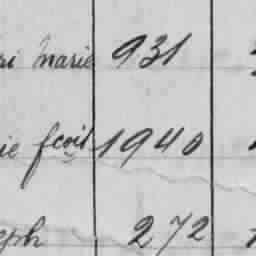 ri Marie 931
ie fcoil 1940
eph 272